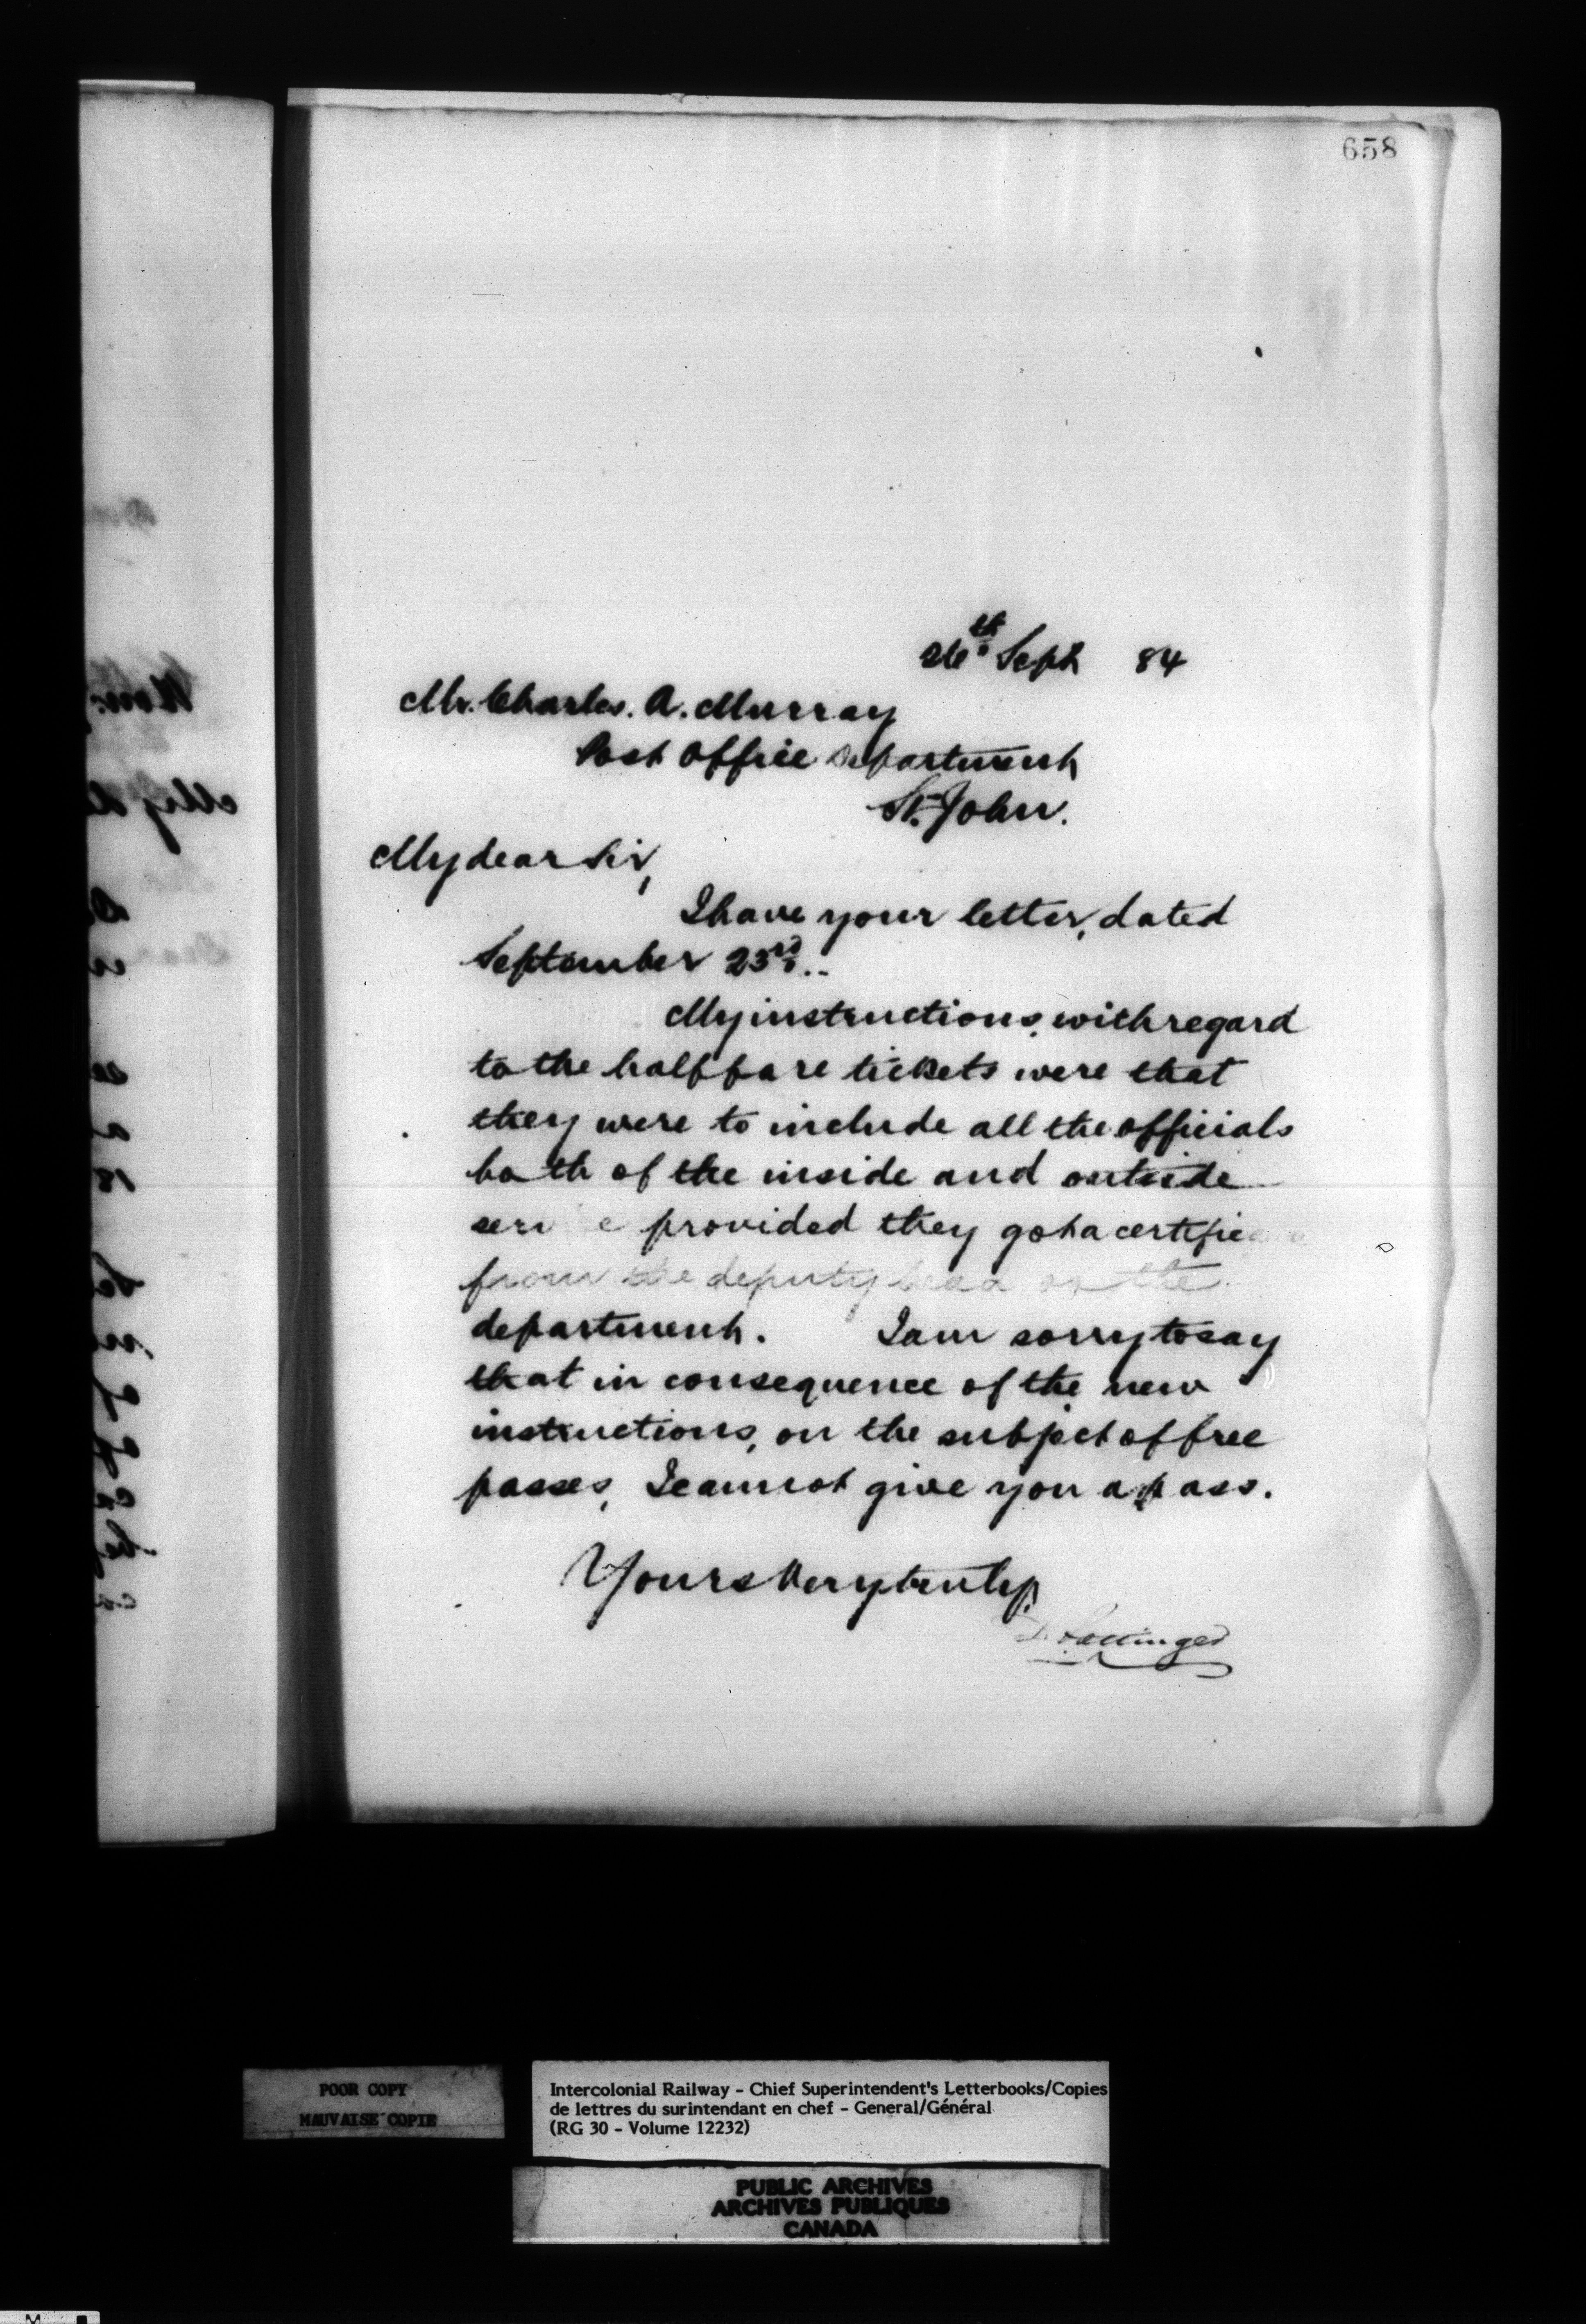 658
26th Sept 84
Mr. Charles. A. Murray
Post Office Department
St. John.
My dear Sir,
I have your letter, dated
September 23rd..
My instructions, with regard
to the half fare tickets were that
they were to include all the officials
both of the inside and outside
service provided they got a certificate
from the deputy head of the
department. I am sorry to say
that in consequence of the new
instructions, on the subject of free
passes, I cannot give you a pass.
Yours very truly,
D. Pottinger
POOR COPY
MAUVAISE COPIE
Intercolonial Railway - Chief Superintendent's Letterbooks/Copies
de lettres du surintendant en chef - General/Général
(RG 30 - Volume 12232)
PUBLIC ARCHIVES
ARCHIVES PUBLIQUES
CANADA